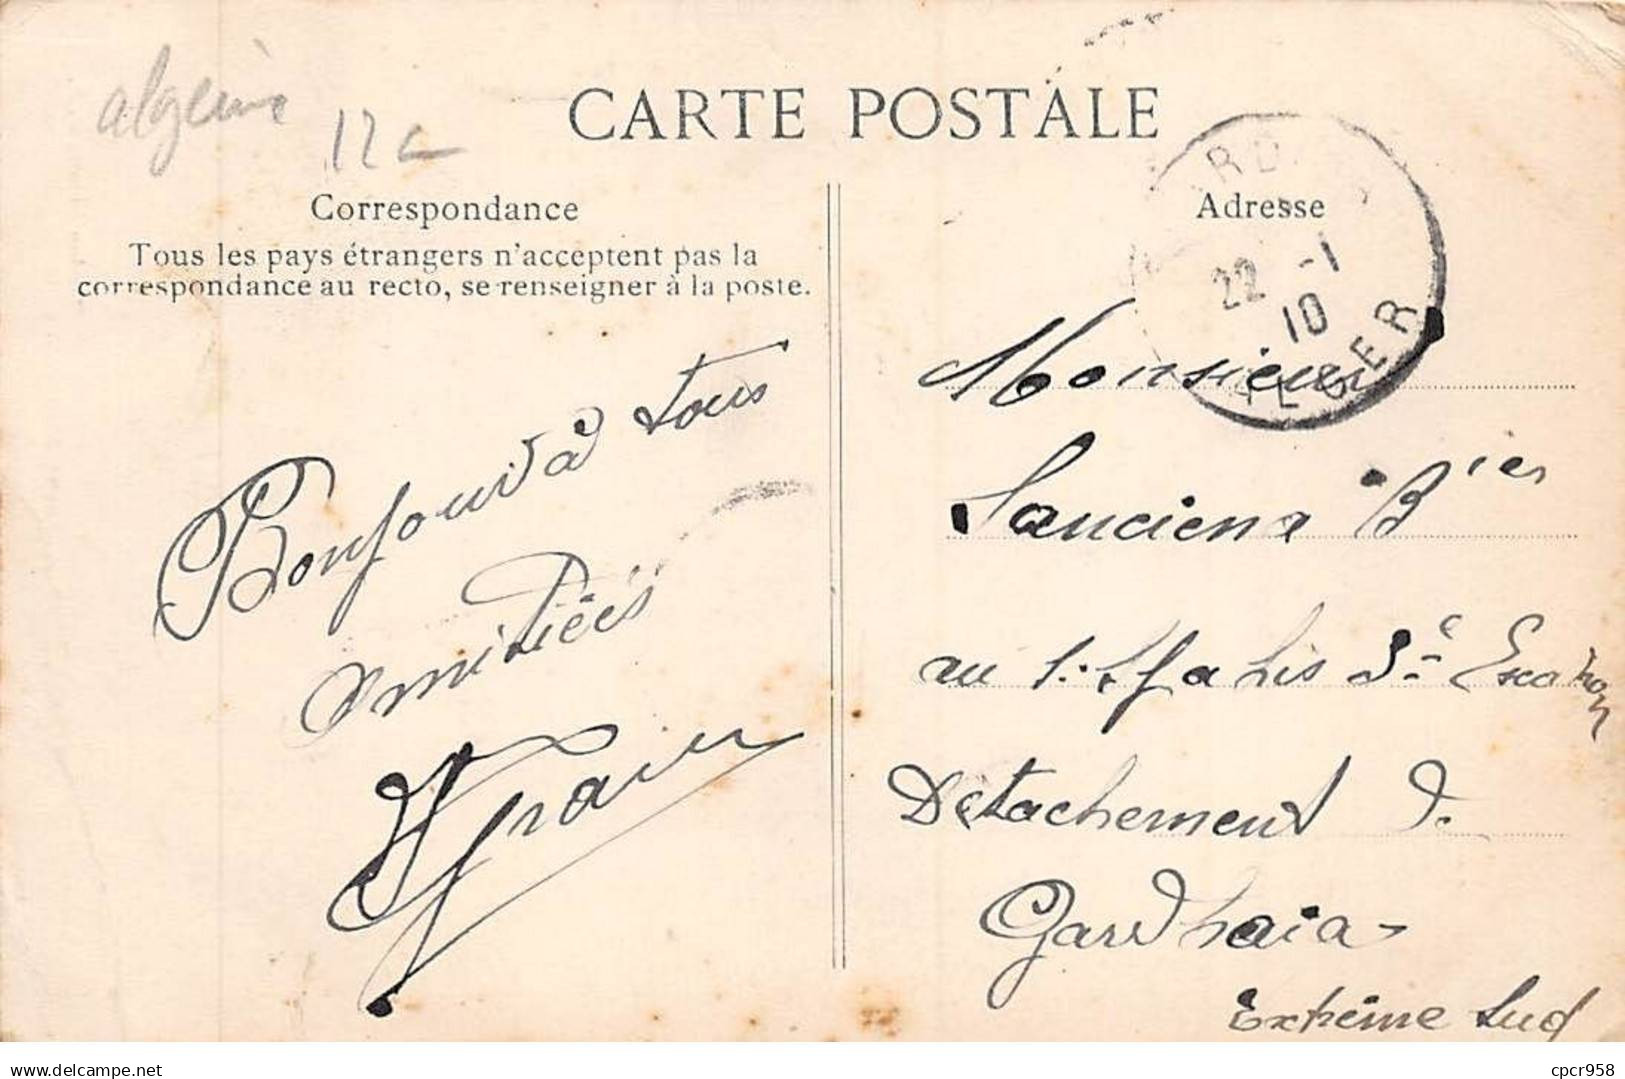 algérie
12 c
CARTE POSTALE
Correspondance
Tous les pays étrangers n'acceptent pas la
correspondance au recto, se renseigner à la poste.
Bonjour à tous
amitiées
Adresse
22 -1
10
ALGER
Monsieur
Sanciena Bier
au 1. Spahis 3e Escadron
Détachement d.
Gardhaia
Extrême Sud
www.delcampe.net
cpcr958